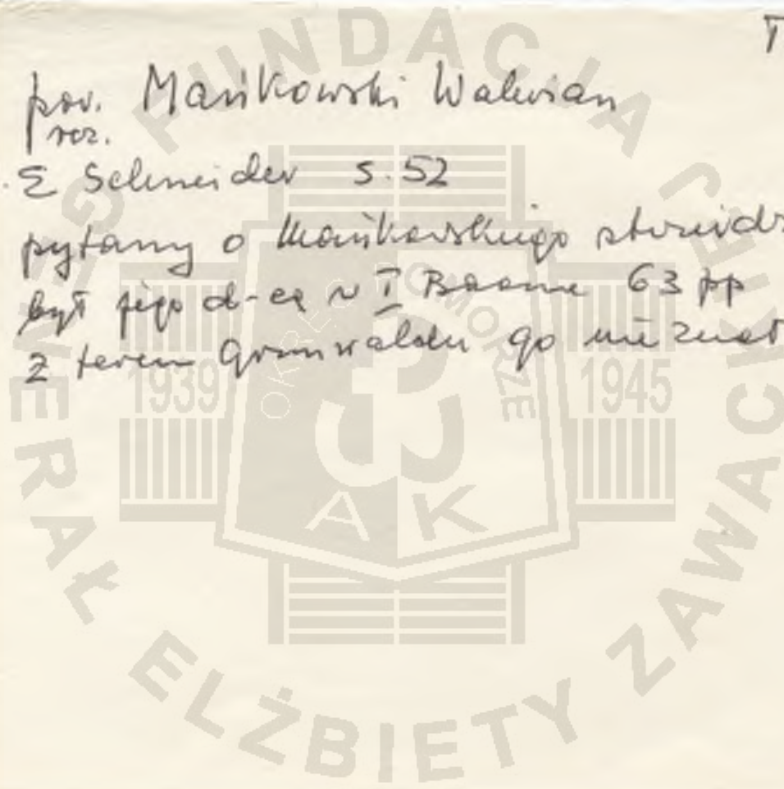 T
por. Mańkowski Walerian
rez.
E Schneider s. 52
pytany o Mańkowskiego stwierdz
był jego d-cą w I Baonie 63 pp
z teren Grunwaldu go nie znał
FUNDACJA GENERAŁ ELŻBIETY ZAWACKIEJ
OKRĘG POMORZE
1939 1945
AK